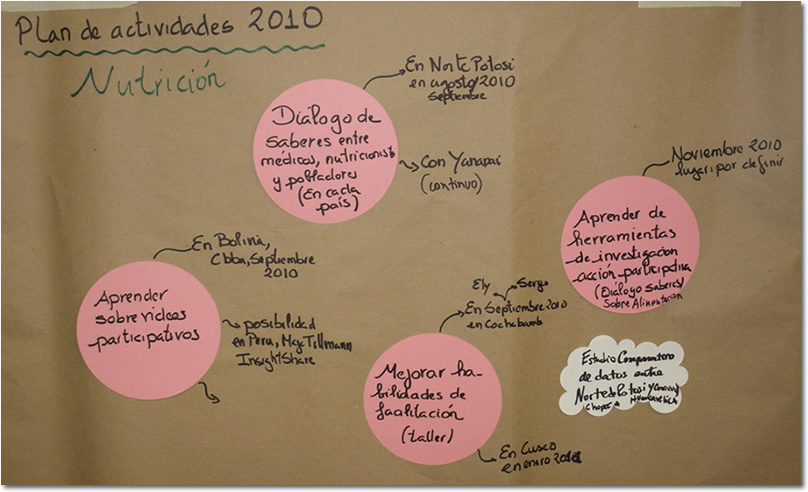 Plan de actividades 2010
Nutrición
Diálogo de
saberes entre
médicos, nutricionist
y pobladores
(En cada
país)
En Norte Potosi
en agosto/2010
septiembre
Con Yanapai
(continuo)
Noviembre 2010
lugar: por definir
Aprender de
herramientas
de investigacion
acción participativa
(Diálogo saberes)
Sobre Alimentacion
Aprender
sobre videos
participativos
En Bolivia,
Cbba, Septiembre
2010
posibilidad
en Peru, May Tillmann
InsightShare
Mejorar ha-
bilidades de
facilitación
(taller)
Ely Sergo
En Septiembre 2010
en Cochabamb
En Cusco
en enero
Estudio Comparativo
de datos entre
Norte de Potosi y
Chopcca Huancavelica